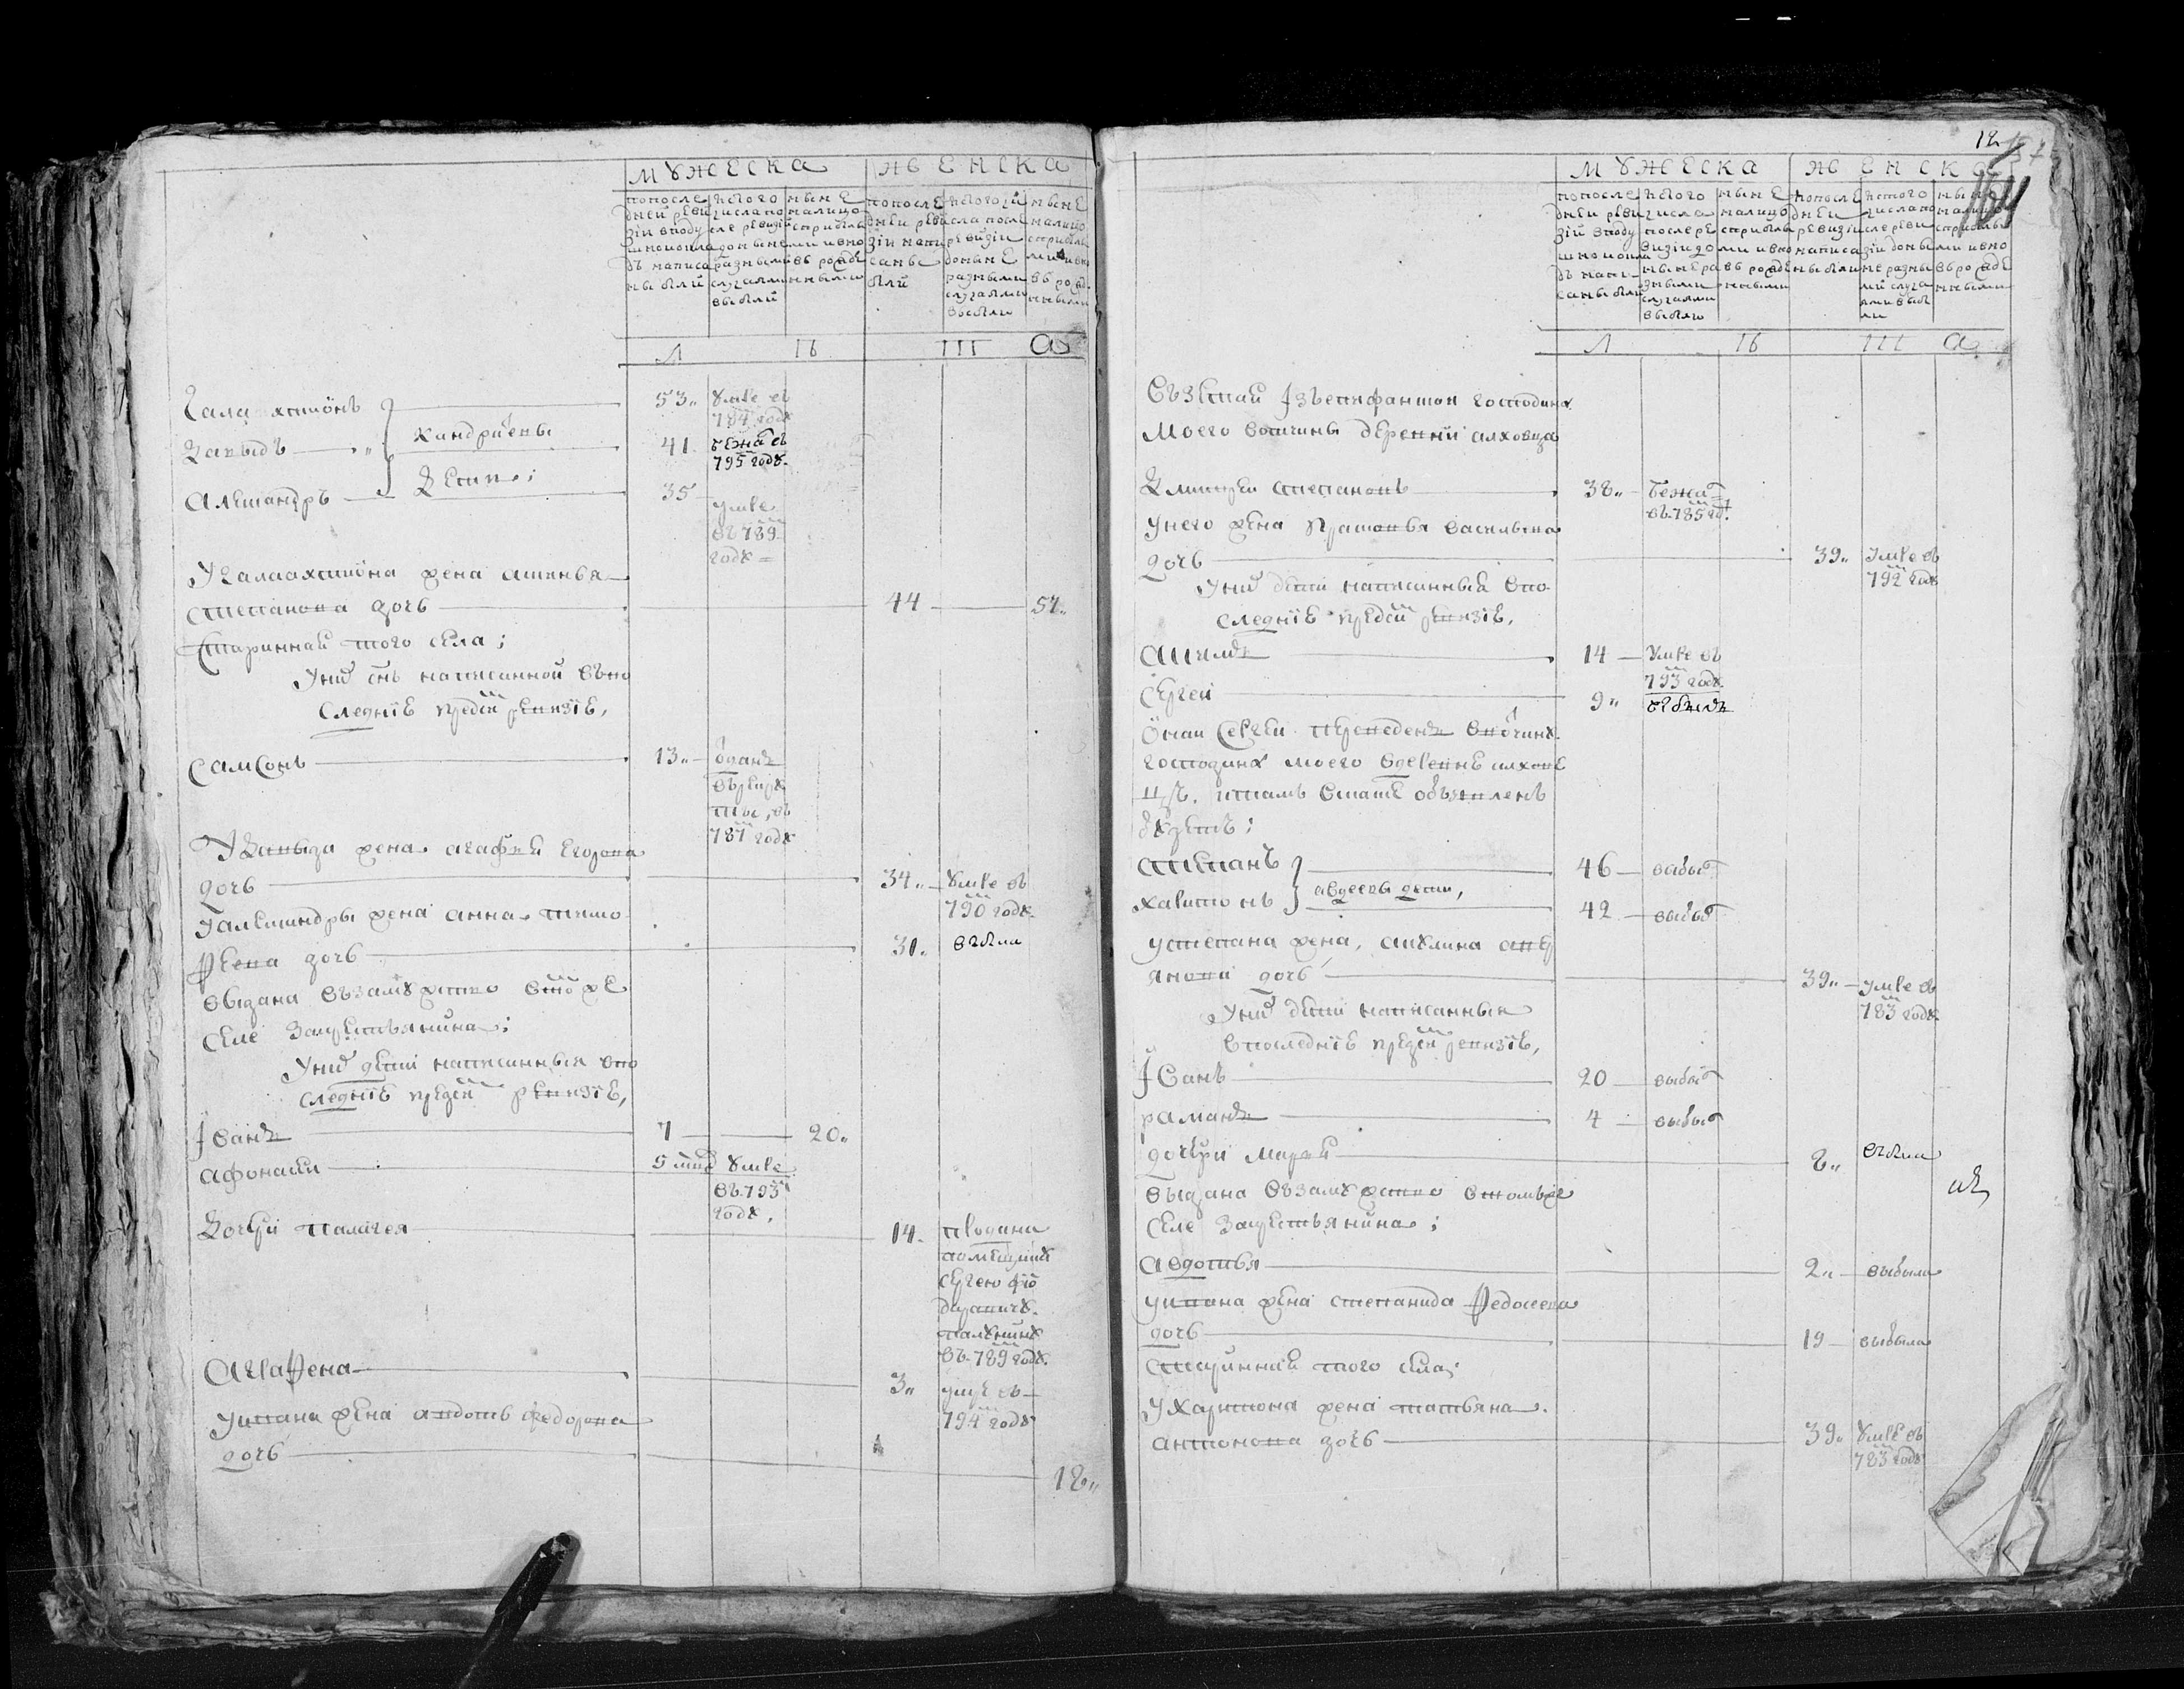 МУЖЕСКА
ЖЕНСКА
попосле
дней реви
зїи вподу
шномокла
дъ написа
ны были
исъ того
числа по
сле ревизїи
доныне
разными
случаями
выбыли
ныне
налицо
сприбылы
ми и вно
въ рожде
нными
попосле
дней реви
зїи напи
саны
были
исътого чи
сла после
ревизїи
доныне
разными
случаями
выбыли
ныне
налицо
сприбылы
ми и вно
въ рожде
нными
Л
IЬ
III
А
Галахтионъ 53 умре въ
784 году
Давыдъ Кондратьевы 41 бежа въ
795 году
дети;
Александръ 35
умре
въ 789
году
У Галаахтиона жена
Степанова дочь 44 57
старинная того села;
Уних снъ написанной въпо
следнїе предъ сей ревизїе,
Самсонъ 13 отданъ
въ рекру
ты, въ
787 году
У Давыда жена Агафья Егорова
дочь 34 умре въ
790 году
У Александры жена Анна Тимо
феева дочь 31 выбыла
выдана възамужство втоже
селе за крестьянина;
Уних дети написанныя впо
следнїе предъ сей ревизїе,
Iванъ 7 20
Афонасеи 5 умре
въ 793
году,
Дочери Палагея 14 продана
помещику
Сергею Фїо
даравичу
въ 789 году.
Аграфена 3 умре въ
794 году
У Ивана жена Авдотья Федорова
дочь 18
12
МУЖЕСКА
ЖЕНСКА
попосле
дней реви
зїи вподу
шномокла
дъ напи
саны были
исъ того
числа
после ре
визїи до
ныне ра
зными
случаями
выбыли
ныне
налицо
сприбылы
ми и вно
въ рожде
нными
попосле
дней
ревизїи
написа
ны были
исъ того
числа по
сле реви
зїи доны
не разны
ми случа
ями выбы
ли
ныне
налицо
сприбылы
ми и вно
въ рожде
нными
Л
IЬ
III
А
Въ Iзъ господина
моего вотчины деревни Алховца
Дмитреи Степановъ 38 бежа
въ 785 го.
У него жена Прасковья Васильева
дочь 39 умре въ
792 году
Уних дети написанныя впо
следнїе предъ сей ревизїе,
14 умре въ
793 году
Сергеи 9 выбылъ
оной Сергеи переведенъ вотчину
господина моего въ деревне Алхове
цъ, и тамъ въ объявленъ
будетъ;
Степанъ 46 выбыл
Харитонъ Авдеевы дети, 42 выбыл
У Степана жена, Акулина Анд
янова дочь 39 умре въ
783 году
Уних дети написанныя
впоследнїе предъ сей ревизїе,
Iванъ 20 выбыл
Раманъ 4 выбыл
дочери Марья 8 выбыла
выдана възамужство втомъже
селе за крестьянина;
Авдотья 2 выбыла
У Ивана жена Степанида Федосеева
дочь 19 выбыла
старинная того села;
У Харитона жена Татьяна
Антонова дочь 39 умре въ
783 году